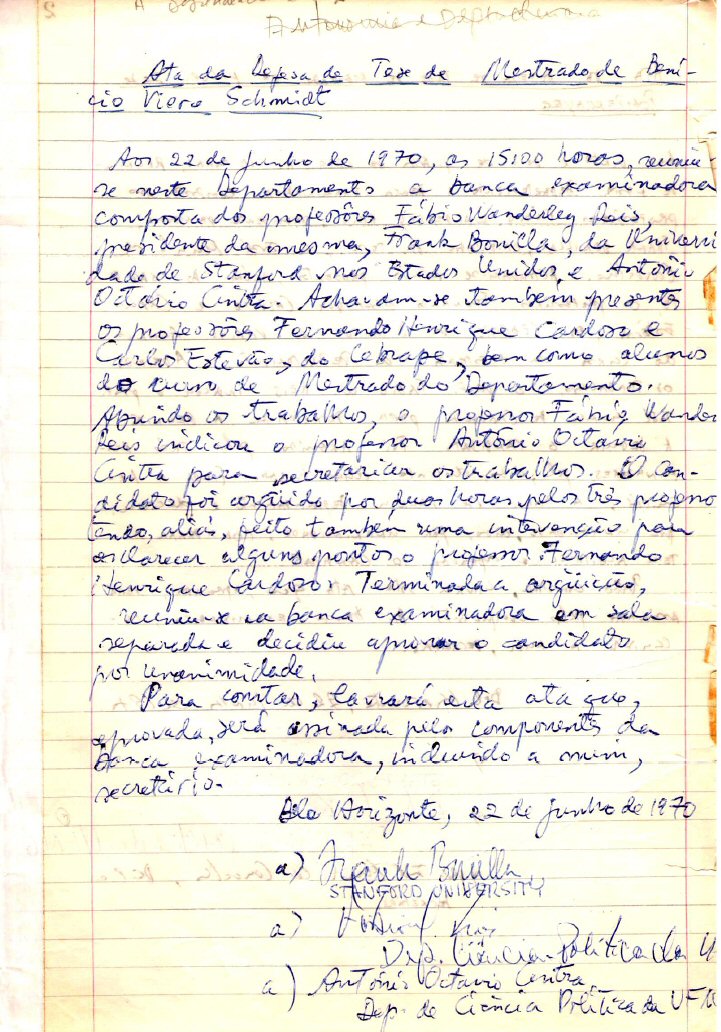 Autonomia e
Ata da Defesa de Tese de Mestrado de Bení-
cio Viero Schmidt
Aos 22 de junho de 1970, às 15:00 horas, reuniu-
-se neste Departamento a banca examinadora
composta dos professôres Fábio Wanderley Reis,
presidente da mesma, Frank Bonilla, da Universi
dade de Stanford nos Estados Unidos, e Antônio
Octávio Cintra. Achavam-se também presentes
os professôres Fernando Henrique Cardoso e
Carlos Estevão, do Cebrape, bem como alunos
do curso de Mestrado do Departamento.
Abrindo os trabalhos, o professor Fábio Wander
Reis indicou o professor Antônio Octávio
Cintra para secretariar os trabalhos. O can-
didato foi argüido por duas horas pelos três professo
tendo, aliás, feito também uma intervenção para
esclarecer alguns pontos o professor Fernando
Henrique Cardoso. Terminada a argüição,
reuniu-se a banca examinadora em sala
separada e decidiu aprovar o candidato
por unanimidade.
Para constar, lavrará esta ata que,
aprovada, será assinada pelos componentes da
banca examinadora, incluindo a mim,
secretário.
Belo Horizonte, 22 de junho de 1970
a) Frank Bonilla
STANFORD UNIVERSITY
a)
Dep. Ciência Política da U
a) Antônio Octavio Cintra
Dep. de Ciência Política da UFM